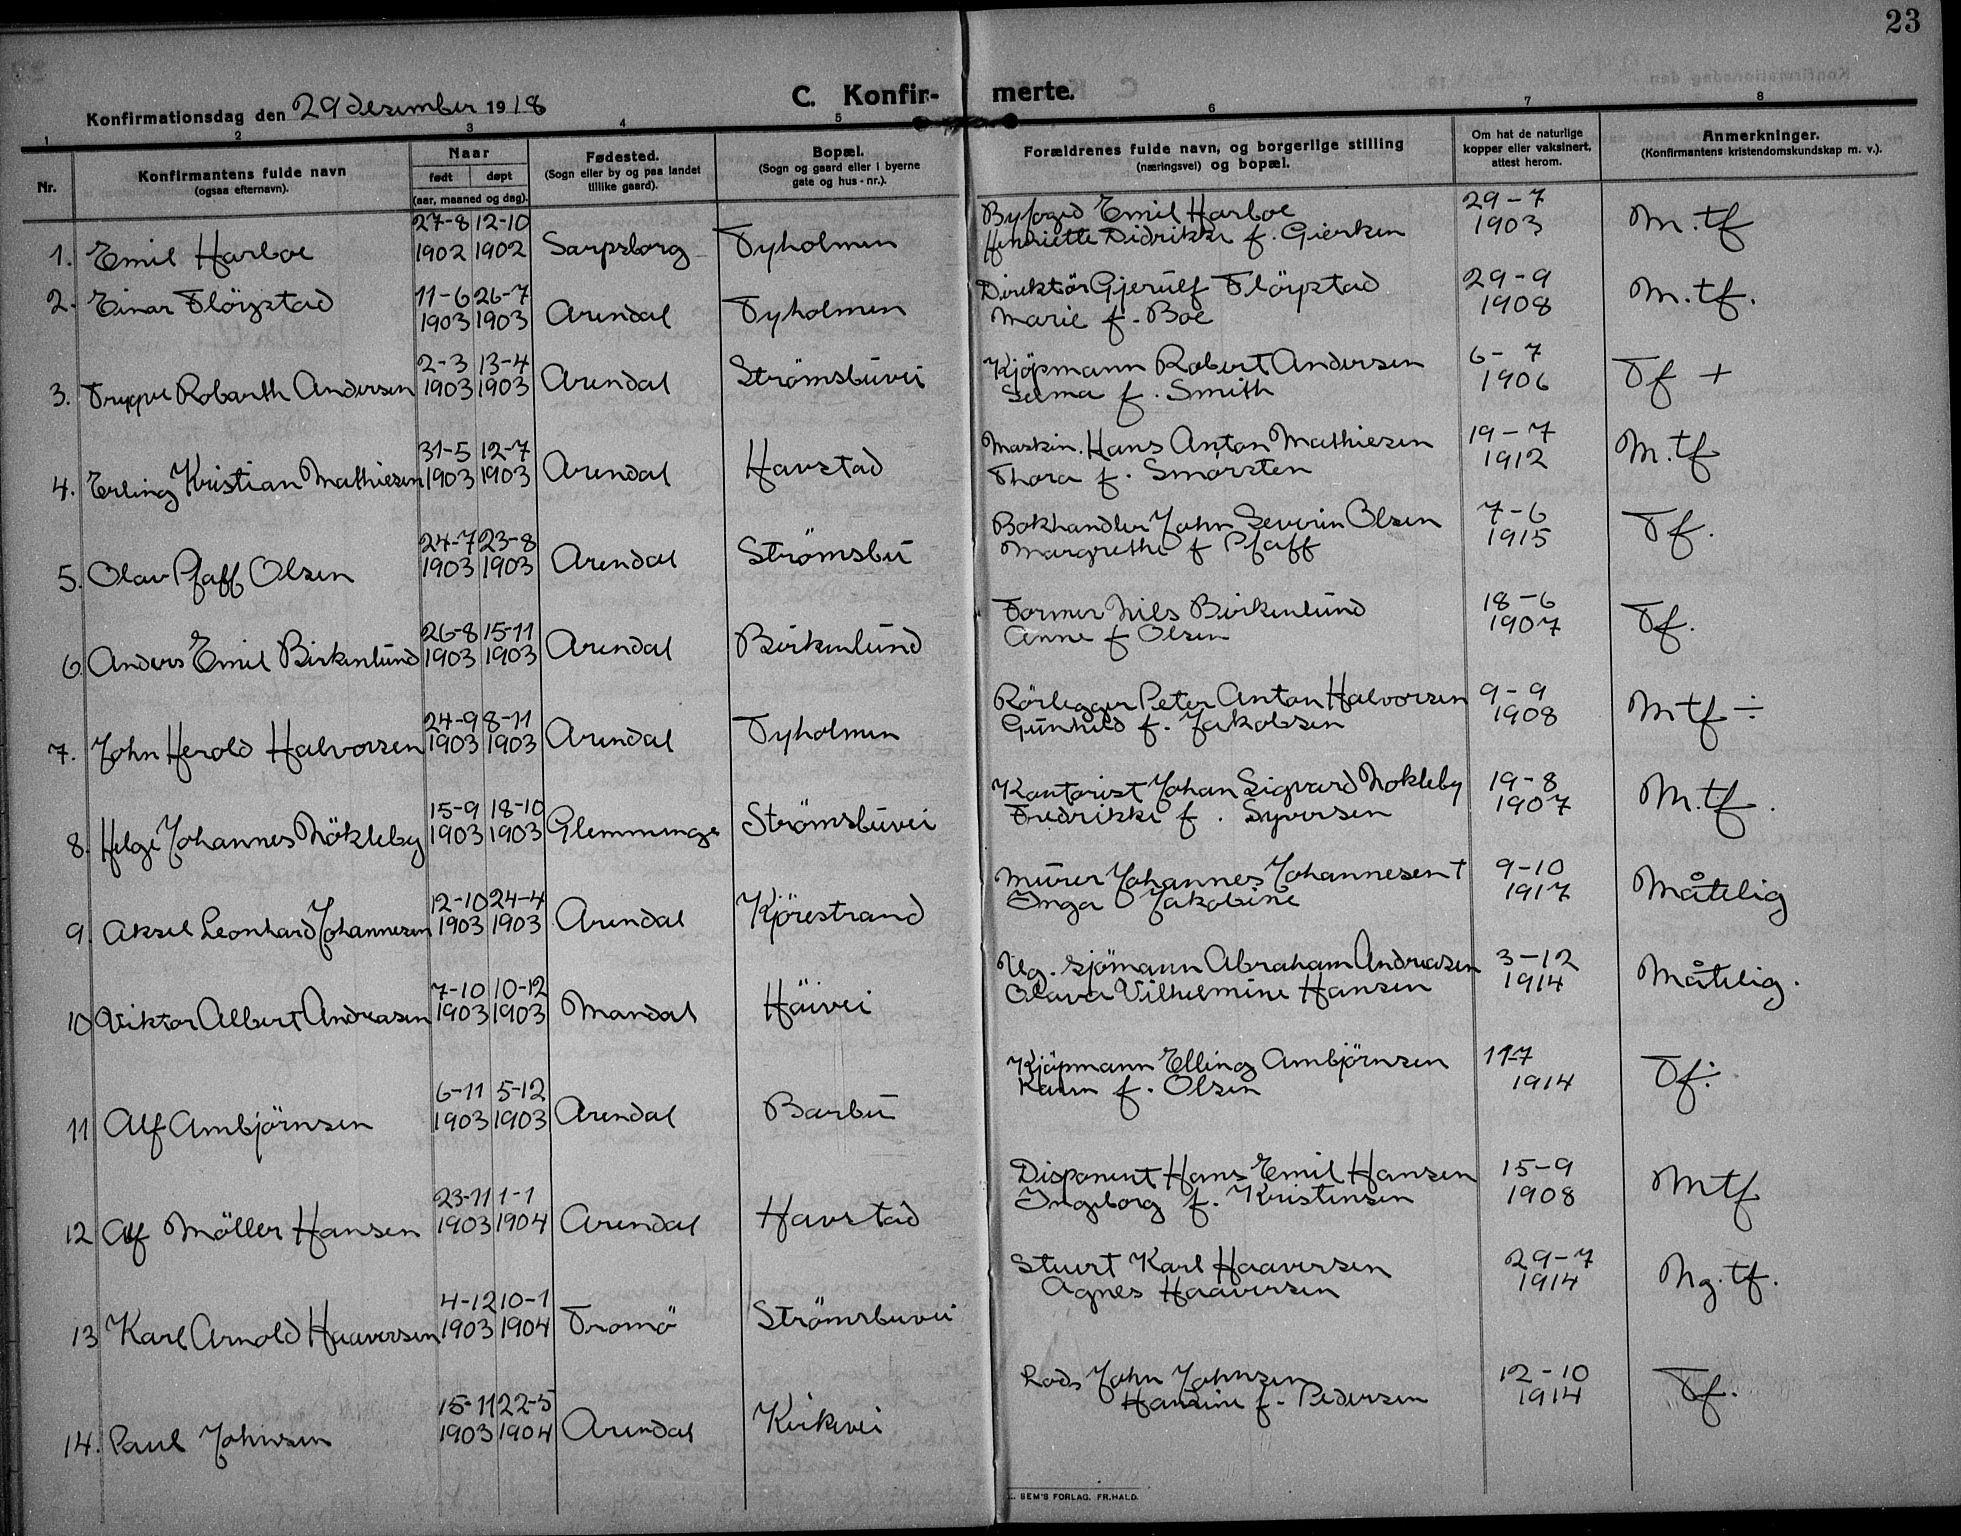 23
Konfirmationsdag den 29 desember 1918
C. Konfir- merte.
1 2 3 4 5 6 7 8
Nr.
Konfirmantens fulde navn
(ogsaa efternavn).
Naar
født døpt
(aar, maaned og dag).
Fødested.
(Sogn eller by og paa landet
tillike gaard).
Bopæl.
(Sogn og gaard eller i byerne
gate og hus-nr.).
Forældrenes fulde navn, og borgerlige stilling
(næringsvei) og bopæl.
Om hat de naturlige
kopper eller vaksinert,
attest herom.
Anmerkninger.
(Konfirmantens kristendomskundskap m. v.).
27-8 12-10 Byfoged Emil Harboe 29-7
1. Emil Harboe 1902 1902 Sarpsborg Tyholmen Henriette Didrikke f. Gierken 1903 M.tf
2. Einar Flöystad 11-6 26-7 Direktör Gjerulf Flöystad 29-9
1903 1903 Arendal Tyholmen Marie f. Boe 1908 M.tf.
2-3 13-4 Kjöpmann Robert Andersen 6-7
3. Trygve Robarth Andersen 1903 1903 Arendal Strömsbuvei Selma f. Smith 1906 Tf +
31-5 12-7 Maskin. Hans Anton Mathiesen 19-7
4. Erling Kristian Mathiesen 1903 1903 Arendal Havstad Thora f. Smörsten 1912 M.tf
24-7 23-8 Bokhandler John Severin Olsen 7-6
5. Olav Pfaff Olsen 1903 1903 Arendal Strömsbu Margrethe f Pfaff 1915 Tf.
26-8 15-11 Former Nils Birkenlund 18-6
6. Anders Emil Birkenlund 1903 1903 Arendal Birkenlund Anne f Olsen 1907 Tf.
24-9 8-11 Rörlegger Peter Anton Halvorsen 9-9
7. John Herold Halvorsen 1903 1903 Arendal Tyholmen Gunhild f. Jakobsen 1908 Mtf ÷
15-9 18-10 Kontorist Johan Sigvard Nokleby 19-8
8. Helge Johannes Nökleby 1903 1903 Glemminge Strömsbuvei Fredrikke f. Syversen 1907 M.tf.
12-10 24-4 Murer Johannes Johannesen † 9-10
9. Aksel Leonhard Johannesen 1903 1903 Arendal Kjörestrand Inga Jakobine 1917 Måtelig
7-10 10-12 Ug. sjömann Abraham Andreasen 3-12
10 Viktor Albert Andreasen 1903 1903 Mandal Höivei Olava Vilhelmine Hansen 1914 Måtelig.
6-11 5-12 Kjöpmann Elling Ambjörnsen 11-7
11 Alf Ambjörnsen 1903 1903 Arendal Barbu Karen f. Olsen 1914 Tf÷
23-11 1-1 Disponent Hans Emil Hansen 15-9
12 Alf Möller Hansen 1903 1904 Arendal Havstad Ingeborg f. Kristensen 1908 Mtf
4-12 10-1 Stuert Karl Haaversen 29-7
13 Karl Arnold Haaversen 1903 1904 Tromö Strömsbuvei Agnes Haaversen 1914 Ng.tf.
15-11 22-5 Lods John Johnsen 12-10
14. Paul Johnsen 1903 1904 Arendal Kirkevei Hansine f. Pedersen 1914 Tf.
SEM'S FORLAG. FR.HALD.